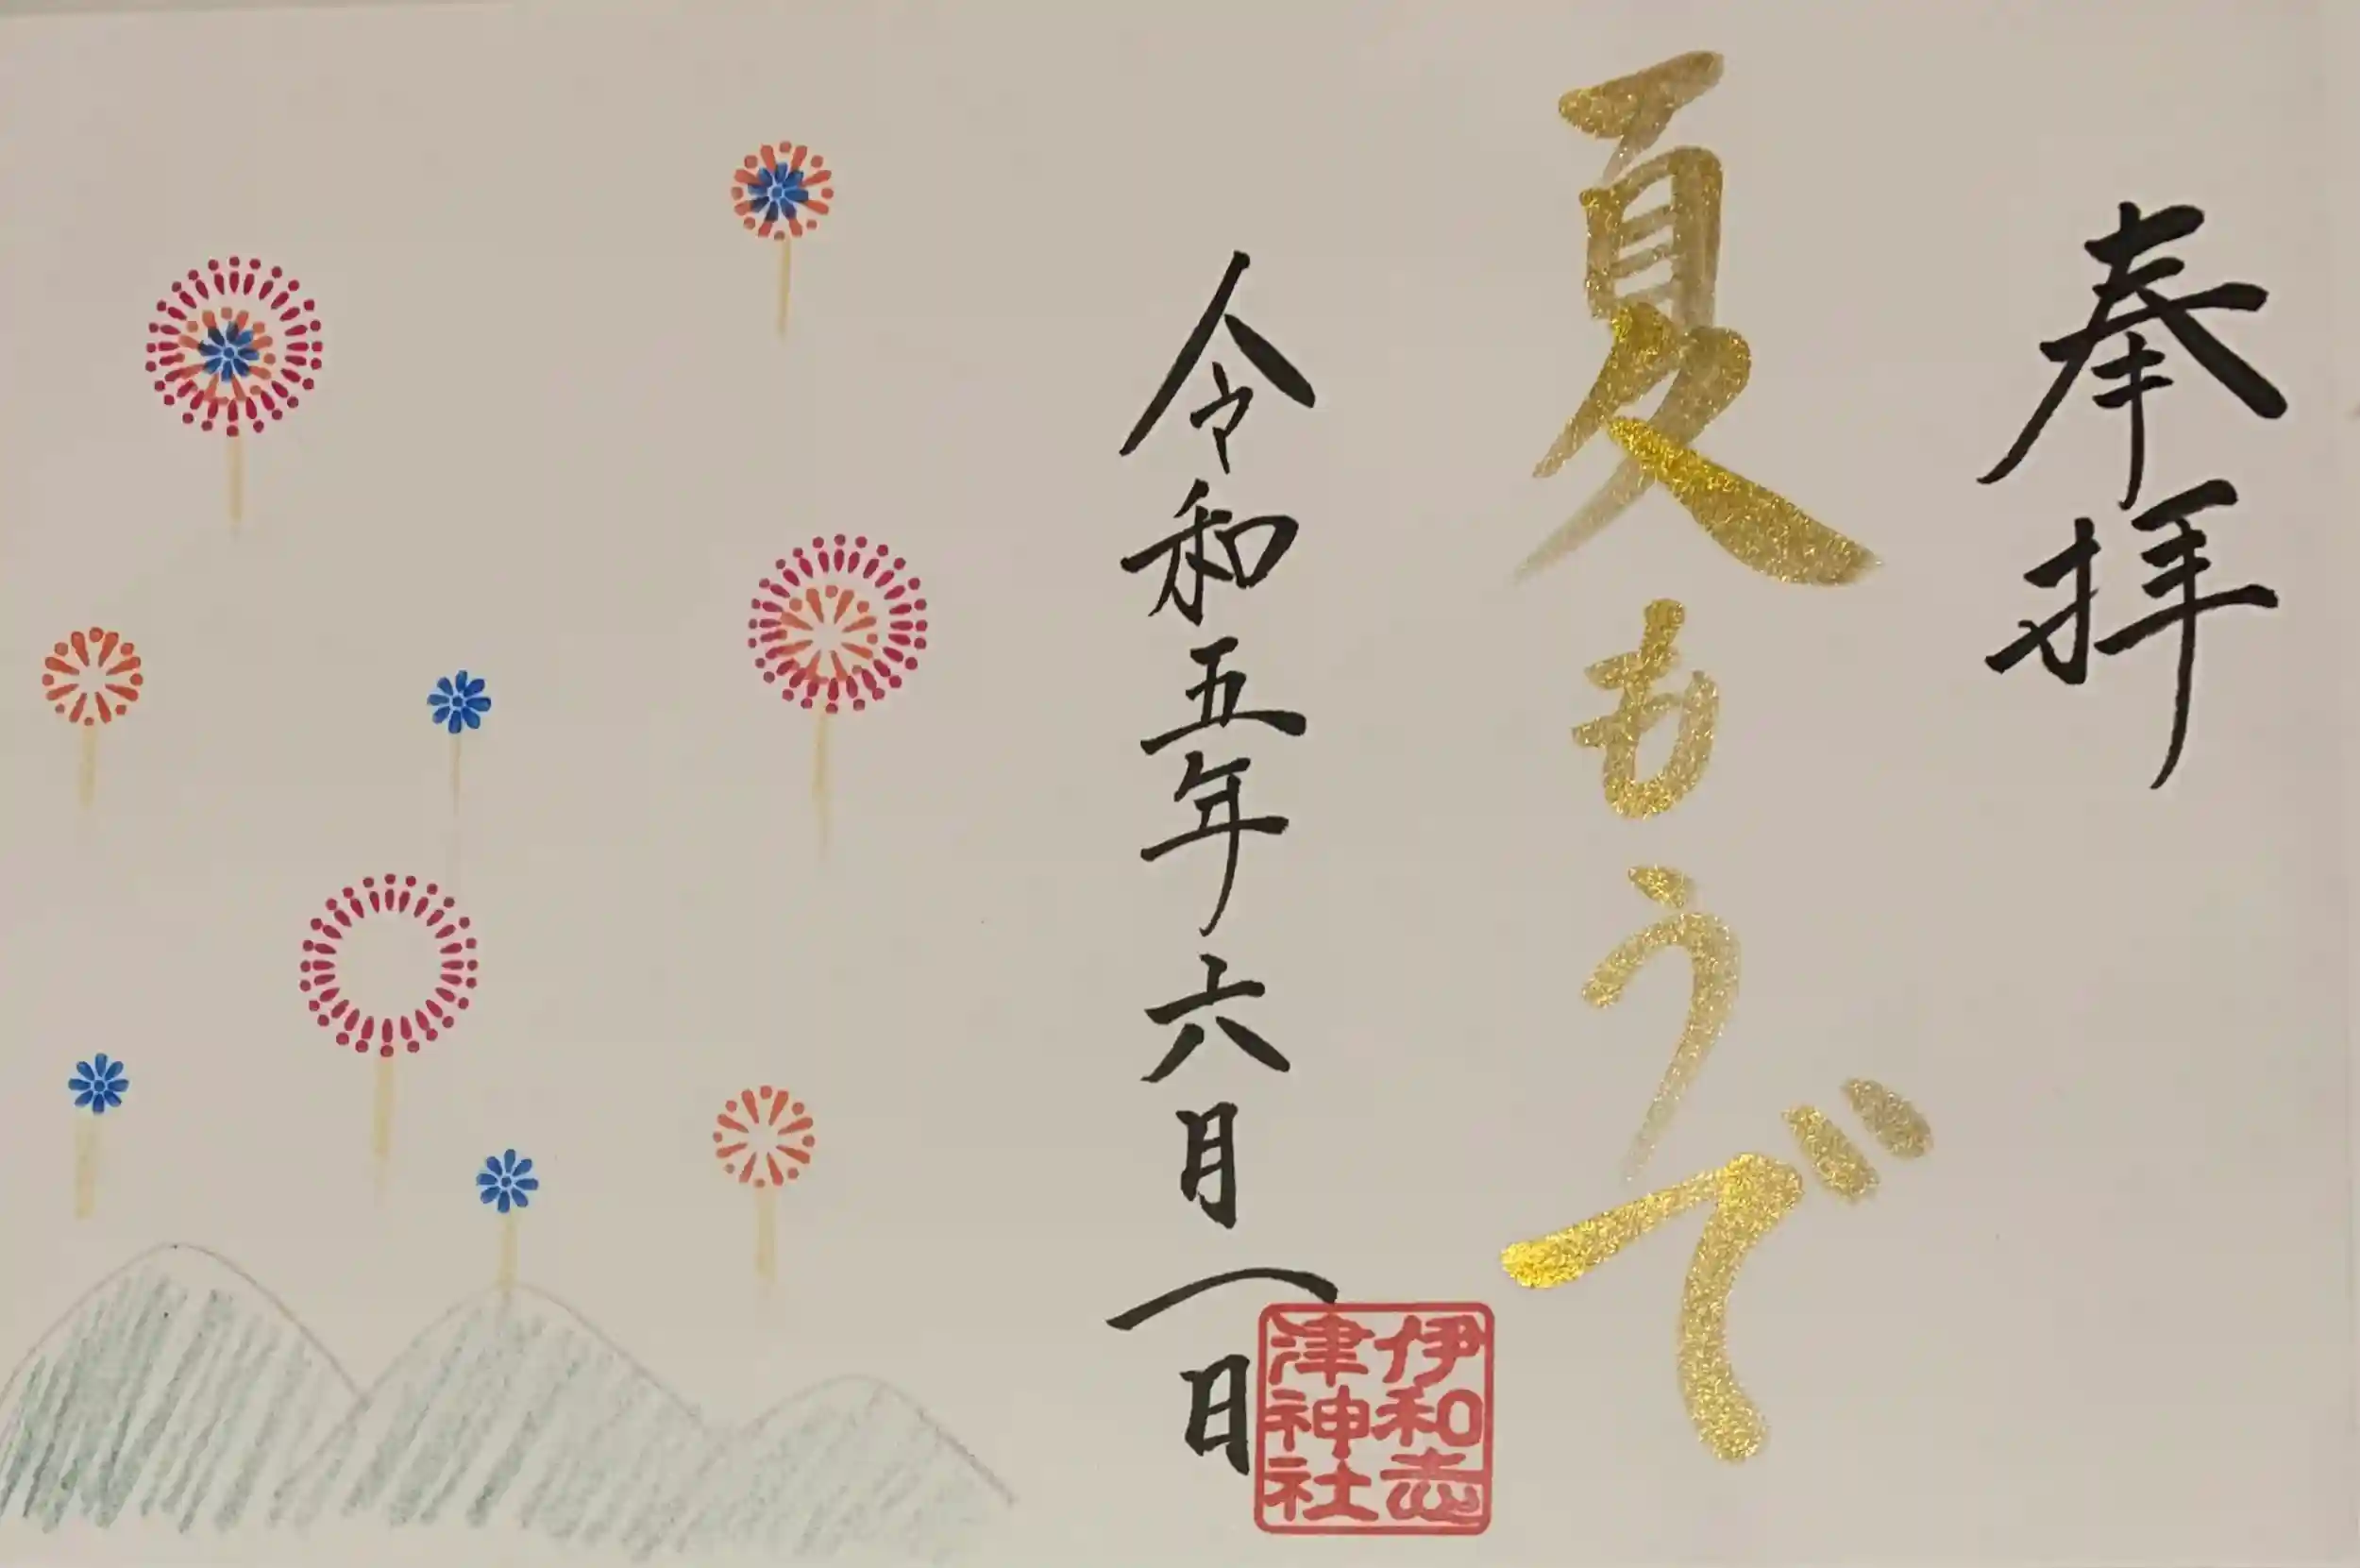 奉拝
夏もうで
令和五年六月一日
伊和志
津神社